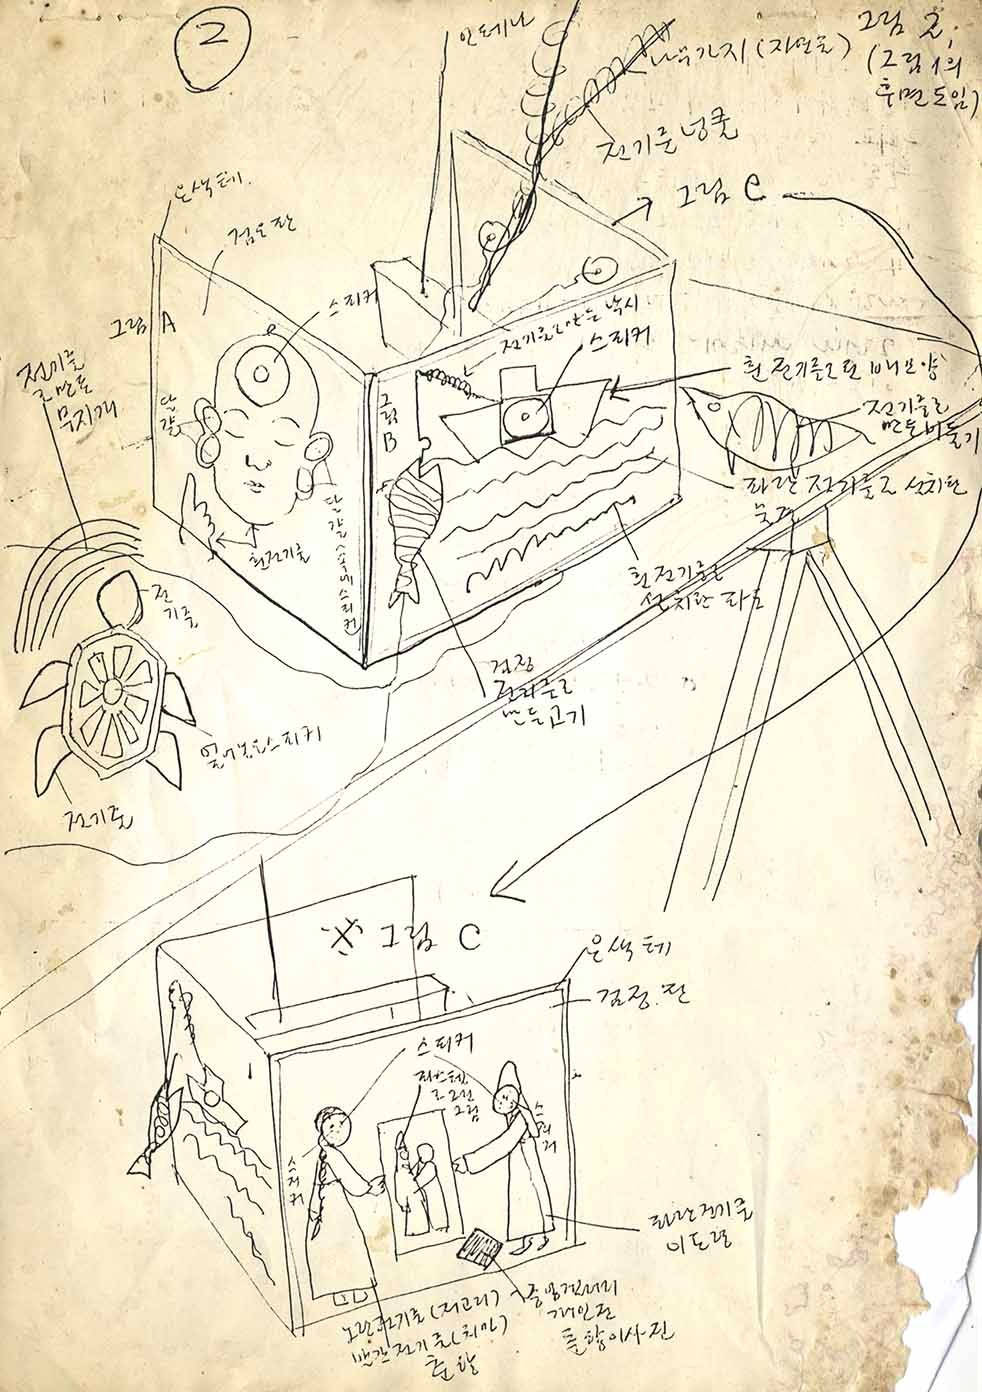 2
안테나
그림 2,
(그림 1의
후면도임)
나무가지 (자연목)
전기줄 넝쿨
그림 C
은색테.
검은판
스피커
그림 A
전기줄
로 만든
무지개
단
갈
전기줄로 만든 낚시
스피커
흰 전기줄로 된 배모양
그림B
전기줄로
만든 비둘기
파란 전기줄로 설치된
물결
흰전기줄
흰 전기줄로
설치한 파도
전
기줄
검정
전기줄로
만든 고기
스피커
전기줄
※ 그림 C
은색 테
검정.판
스피커
파스텔
로 그린
그림
스피커
스피커
파란전기줄
이도령
노란전기줄 (저고리)
빨간전기줄 (치마)
춘향
개인전